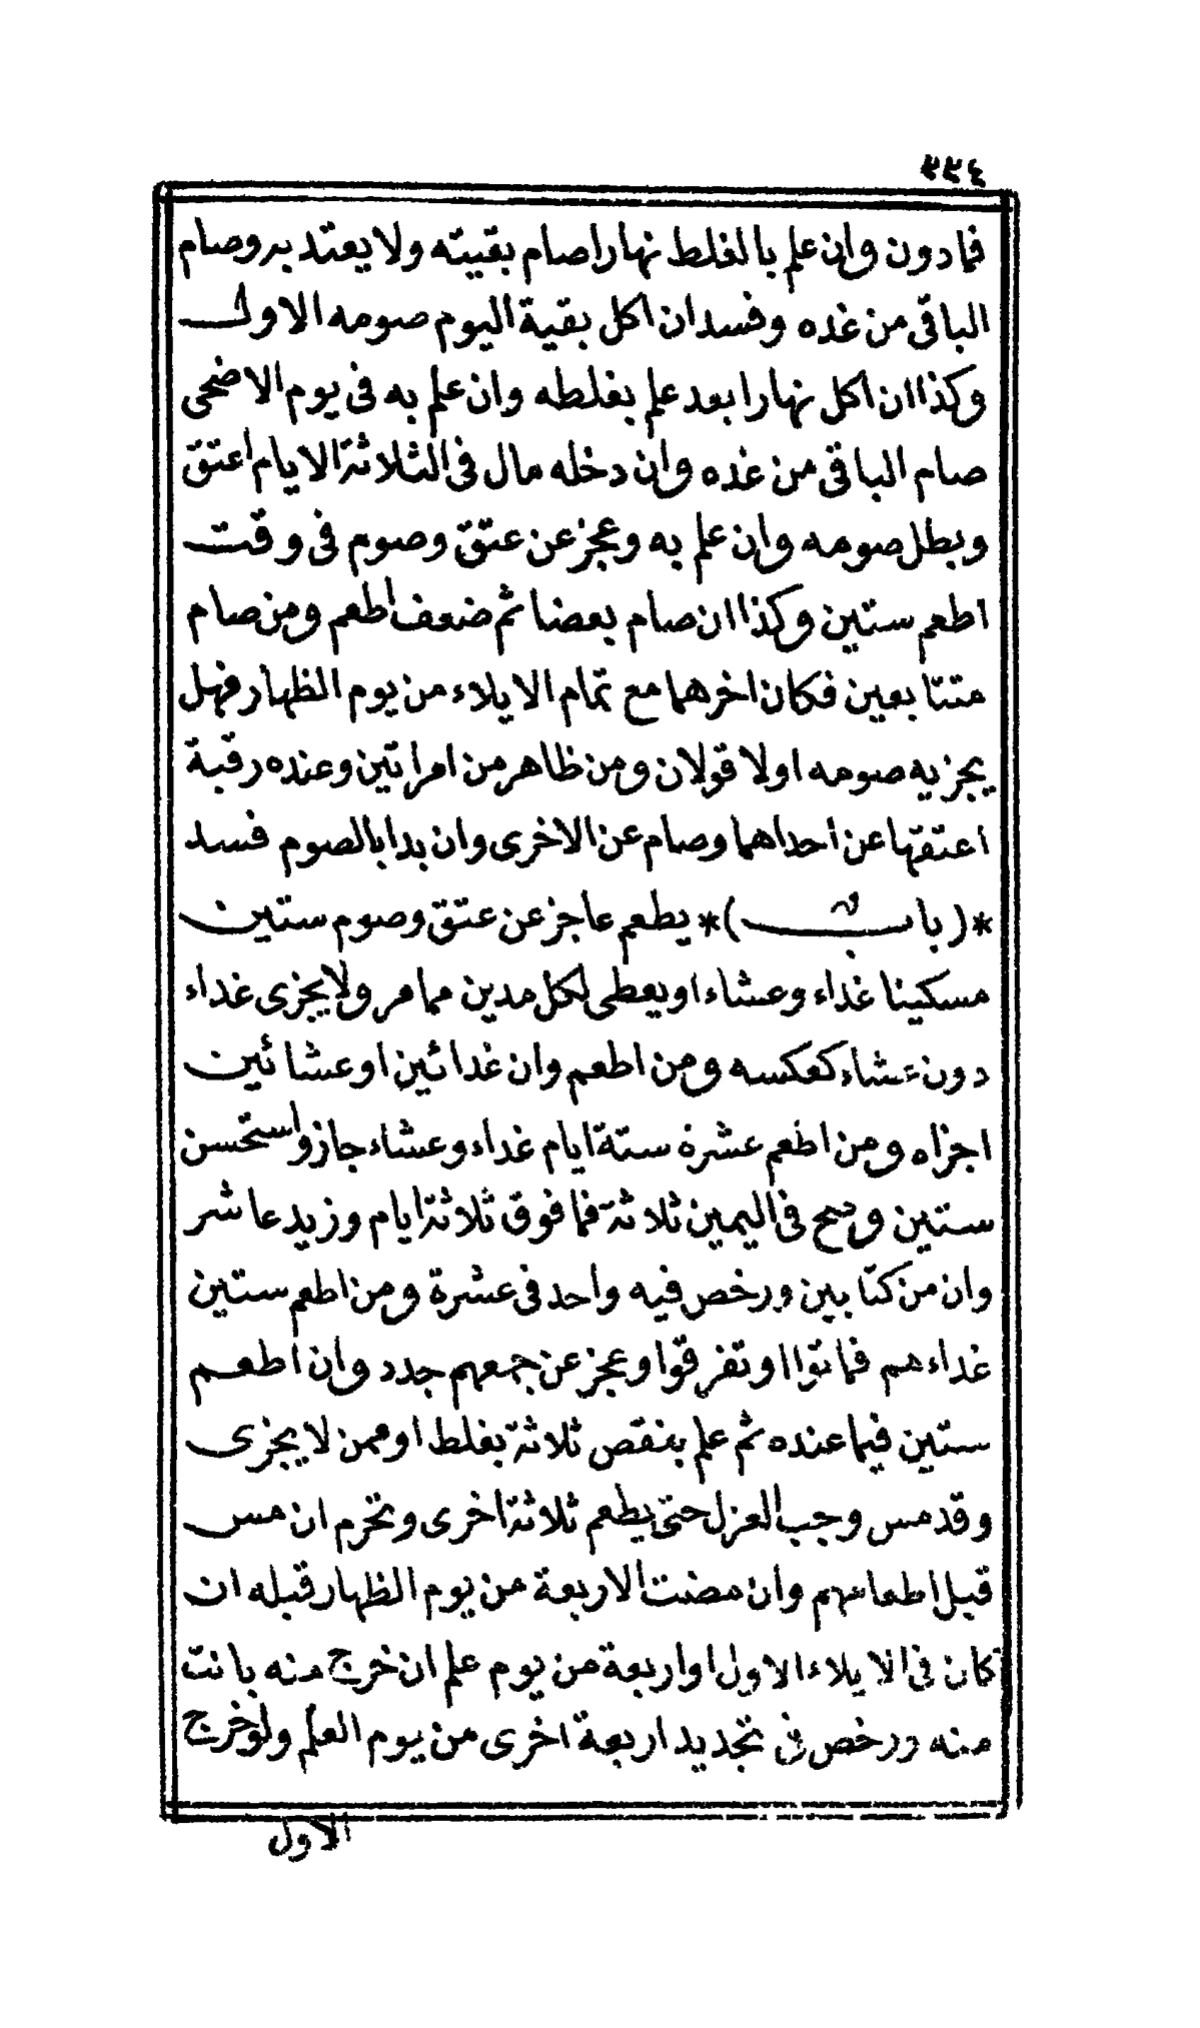 ٣٣٤
فمادون وان علم بالغلط نهارا صام بقيته ولا يعتد به وصام
الباقى من غده وفسد ان اكل بقية اليوم صومه الاول
وكذا ان اكل نهارا بعد علم بغلطه وان علم به فى يوم الاضحى
صام الباقى من غده وان دخله مال فى الثلاثة الايام اعتق
وبطل صومه وان علم به وعجز عن عتق وصوم فى وقت
اطعم ستين وكذا ان صام بعضا ثم ضعف اطعم ومن صام
متتابعين فكان اخرهما مع تمام الايلاء من يوم الظهار فهل
يجزيه صومه اولا قولان ومن ظاهر من امراتين وعنده رقبة
اعتقها عن احداهما وصام عن الاخرى وان بدا بالصوم فسد
*(باب)* يطعم عاجز عن عتق وصوم ستين
مسكينا غداء وعشاء او يعطى لكل مدين مما مر ولا يجزى غداء
دون عشاء كعكسه ومن اطعم وان غدائين او عشائين
اجزاه ومن اطعم عشرة ستة ايام غداء وعشاء جاز واستحسن
ستين وصح فى اليمين ثلاثة فما فوق ثلاثة ايام وزيد عاشر
وان من كتابيين ورخص فيه واحد فى عشرة ومن اطعم ستين
غداءهم فماتوا او تفرقوا وعجز عن جمعهم جدد وان اطعم
ستين فيما عنده ثم علم بنقص ثلاثة بغلط او ممن لا يجزى
وقد مس وجب العزل حتى يطعم ثلاثة اخرى وتحرم ان مس
قبل اطعامهم وان مضت الاربعة من يوم الظهار قبله ان
كان فى الايلاء الاول او اربعة من يوم علم ان خرج منه بانت
منه ورخص فى تجديد اربعة اخرى من يوم العلم ولو خرج
الاول